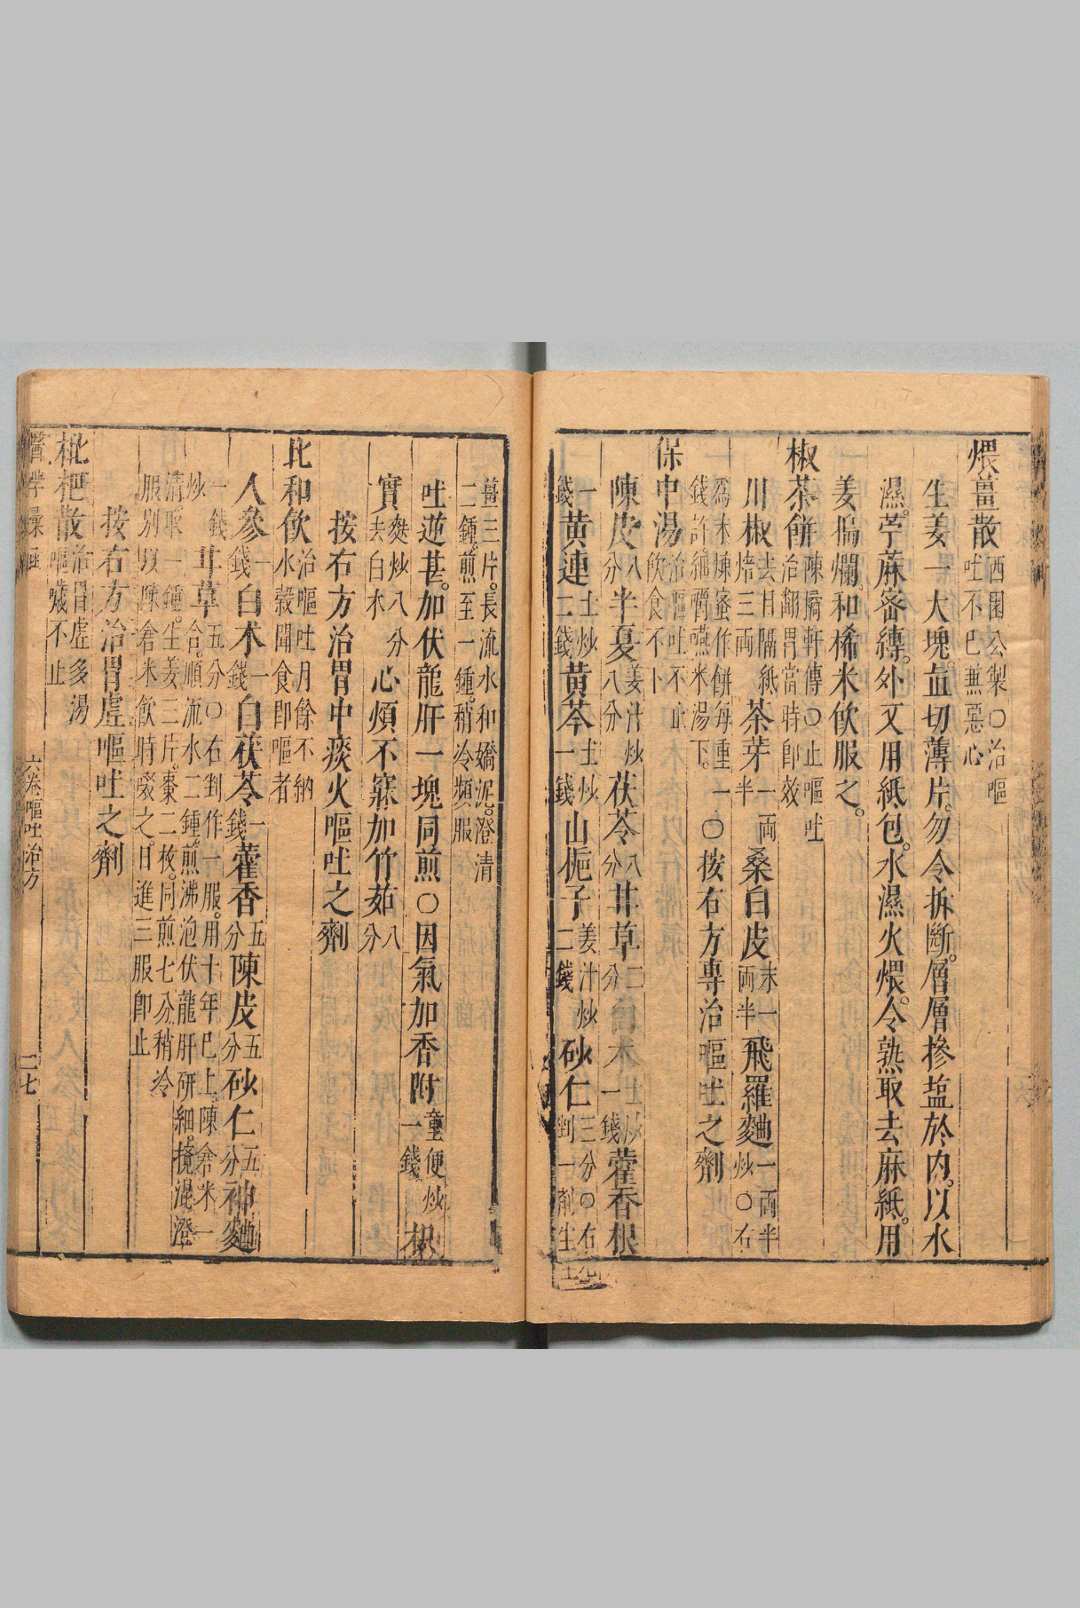 煨薑散 西園公製〇治嘔
吐不已兼惡心
生姜一大塊直切薄片勿令拆斷。層層掺塩於內。以水
濕。苧蔴密縳。外又用紙包。水濕火煨。令熟取去麻紙。用
姜搗爛和稀米飲服之。
椒茶餅 陳橋軒傳〇止嘔吐
治翻胃當時即效
川椒 去目隔紙
焙三両 茶芽 一両
半 桑白皮 末一
両半 飛羅麯 一両半
炒〇右
爲末揀蜜作餅每重一
錢許細嚼燕米湯下。 〇按右方專治嘔吐之劑
保中湯 治嘔吐不止
飲食不下
陳皮 八
分 半夏 姜汁炒
八分 茯苓 八
分 甘草 二
分 白朮 土炒
一錢 藿香根
一
錢 黃連 土炒
二錢 黃芩 土炒
一錢 山梔子 姜汁炒
二錢 砂仁 三分〇右
剉一劑生
薑三片。長流水和嬌泥。澄清
二鍾。煎至一鍾。稍冷頻服
吐逆甚。加伏龍肝一塊同煎〇因氣加香附 童便炒
一錢 枳
實 麩炒八分
去白水 心煩不寐加竹茹 八
分
按右方治胃中痰火嘔吐之劑
比和飲 治嘔吐月餘不納
水穀聞食即嘔者
人參 一
錢 白朮 一
錢 白茯苓 一
錢 藿香 五
分 陳皮 五
分 砂仁 五
分 神麯
炒
一錢 甘草 五分〇右剉作一服。用十年已上。陳倉米一
合。順流水二鍾。煎沸泡伏龍肝研細。攪混澄
清取一鍾。生姜三片。棗二枚。同煎七分稍冷
服別以陳倉米飲時啜之。日進三服即止
按右方治胃虛嘔吐之劑
枇杷散 治胃虛多湯
嘔噦不止
六卷嘔吐治方
二七